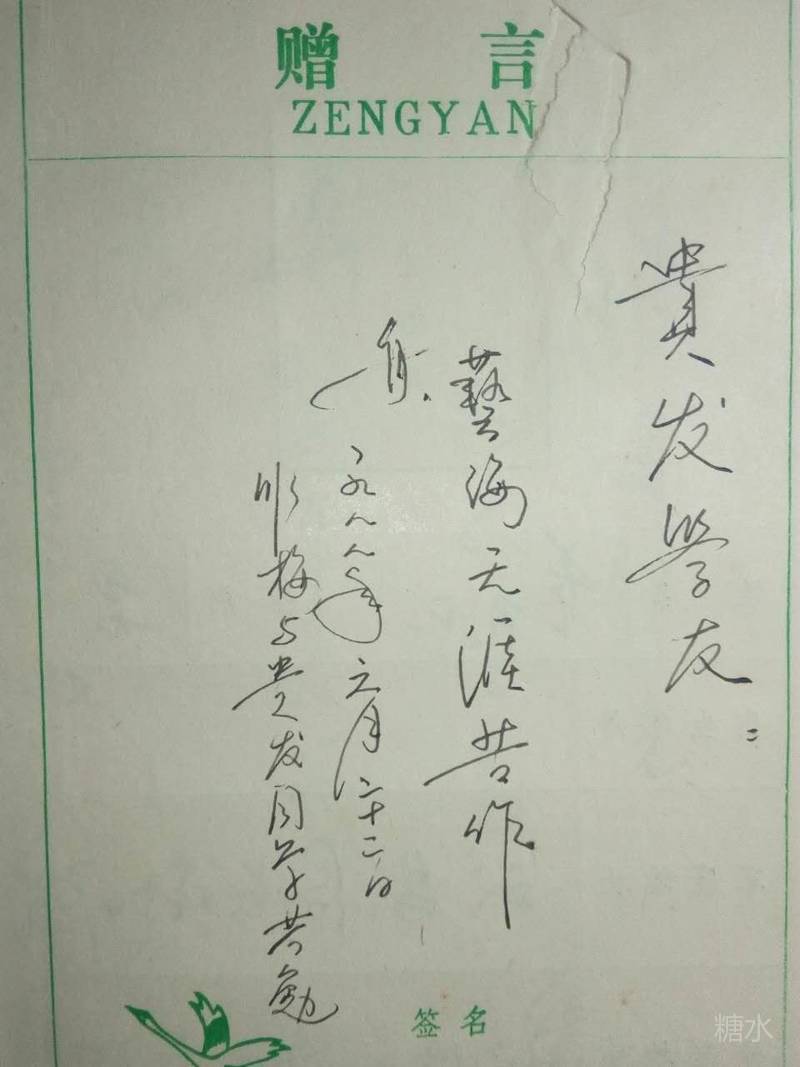 赠言
ZENGYAN
貴发学友：
藝海无涯苦作
舟.
一九八八年六月二十二日
梅与贵发同学共勉
签名
糖水